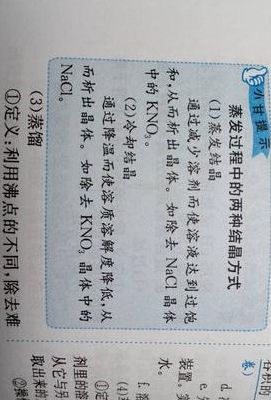 小甘提示
蒸发过程中的两种结晶方式
(1)蒸发结晶
通过减少溶剂而使溶液达到过饱
和,从而析出晶体。如除去 NaCl 晶体
中的 KNO₃。
(2)冷却结晶
通过降温而使溶质溶解度降低,从
而析出晶体。如除去 KNO₃ 晶体中的
NaCl。
(3)蒸馏
①定义:利用沸点的不同,除去难
装置。
水。
剂里的溶
从它与另
取出来的